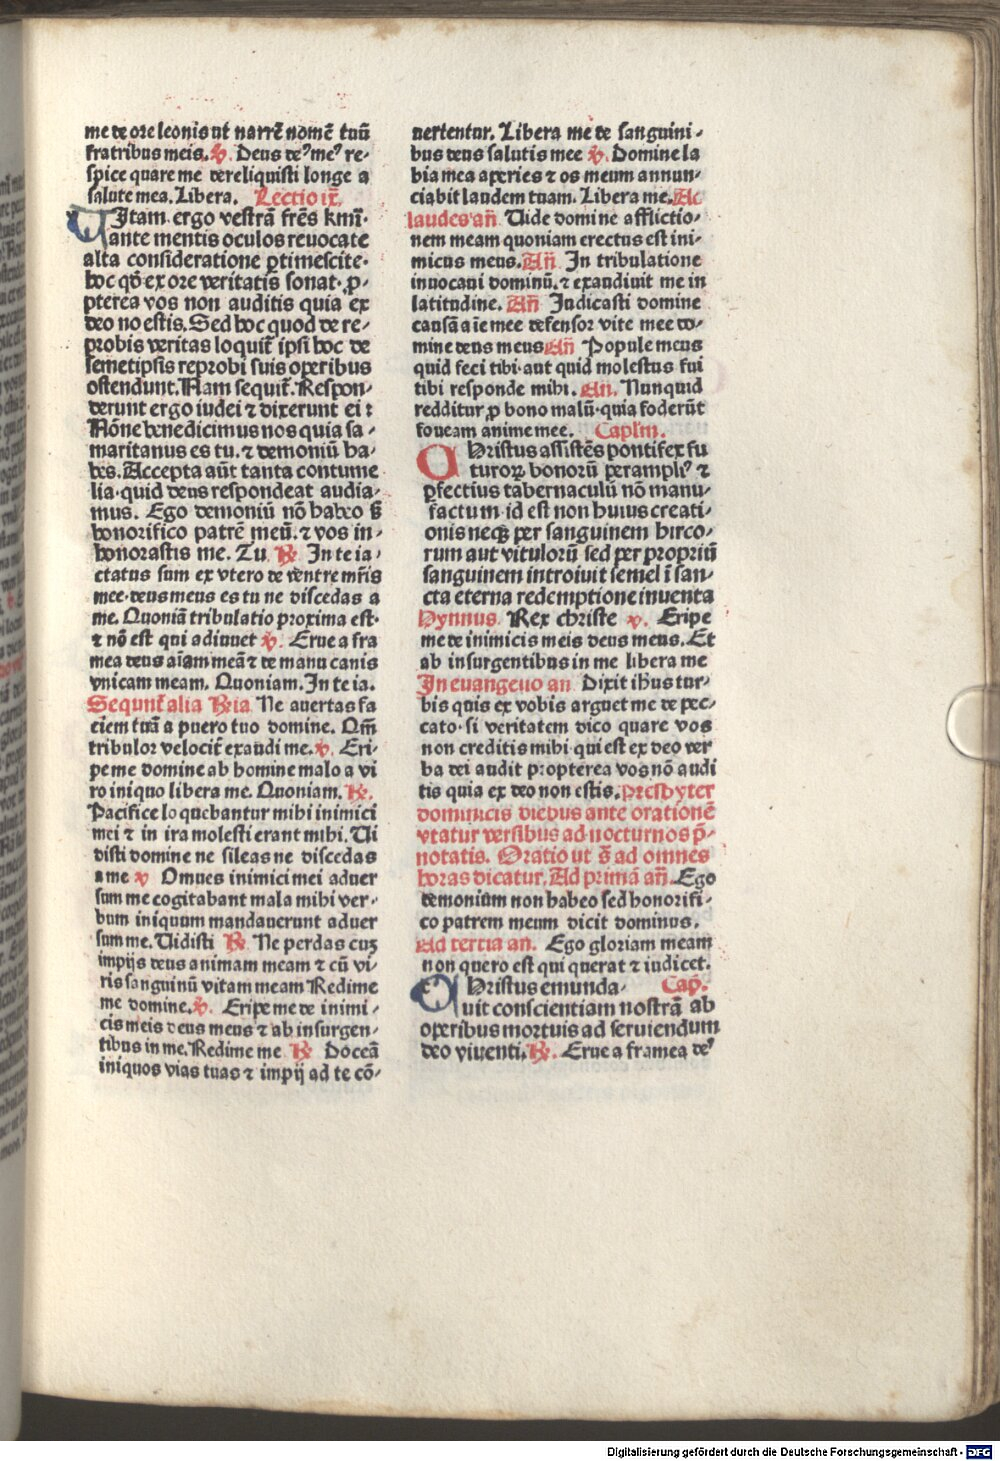 me de ore leonis ut narrē nomē tuū
fratribus meis. ℣. Deus deꝰ meꝰ re⸗
spice quare me dereliquisti longe a
salute mea. Libera. Lectio ix̄.
Uitam ergo vestrā frēs kmī⸱
ante mentis oculos reuocate
alta consideratione ꝑtimescite⸱
hoc qd̄ ex ore veritatis sonat⸱ ꝓ⸗
pterea vos non auditis quia ex
deo no estis. Sed hoc quod de re⸗
probis veritas loquit̄ ipsi hoc de
semetipsis reprobi suis operibus
ostendunt. Nam sequit̄. Respon⸗
derunt ergo iudei ⁊ dixerunt ei :
Nōne benedicimus nos quia sa⸗
maritanus es tu. ⁊ demoniū ha⸗
bes. Accepta aūt tanta contume
lia⸱ quid deus respondeat audia⸗
mus. Ego demoniū nō habeo s̄
honorifico patrē meū. ⁊ vos in⸗
honorastis me. Tu ℟ In te ia⸗
ctatus sum ex vtero de ventre mr̄is
mee⸱ deus meus es tu ne discedas a
me. Quoniā tribulatio proxima est⸱
⁊ nō est qui adiuuet ℣. Erue a fra
mea deus aīam meā ⁊ de manu canis
vnicam meam. Quoniam. In te ia.
Sequnt̄ alia ℟ia Ne auertas fa
ciem tuā a puero tuo domine. Qm̄
tribulor velocit̄ exaudi me. ℣. Eri⸗
pe me domine ab homine malo a vi
ro iniquo libera me. Quoniam. ℟.
Pacifice loquebantur mihi inimici
mei ⁊ in ira molesti erant mihi. Ui
disti domine ne sileas ne discedas
a me ℣ Omnes inimici mei aduer
sum me cogitabant mala mihi ver⸗
bum iniquum mandauerunt aduer
sum me. Uidisti ℟. Ne perdas cuꝫ
impijs deus animam meam ⁊ cū vi⸗
ris sanguinū vitam meam Redime
me domine. ℣. Eripe me de inimi⸗
cis meis deus meus ⁊ ab insurgen⸗
tibus in me. Redime me ℟ Doceā
iniquos vias tuas ⁊ impij ad te cō⸗
uertentur. Libera me de sanguini⸗
bus deus salutis mee ℣. Domine la
bia mea aperies ⁊ os meum annun⸗
ciabit laudem tuam. Libera me. Ac
laudes añ Uide domine afflictio⸗
nem meam quoniam erectus est ini⸗
micus meus. Añ In tribulatione
inuocaui dominū. ⁊ exaudiuit me in
latitudine. Añ Iudicasti domine
causā aīe mee defensor vite mee do⸗
mine deus meus Añ Popule meus
quid feci tibi⸱ aut quid molestus fui
tibi responde mihi. Añ. Nunquid
redditur ꝓ bono malū⸱ quia foderūt
foueam anime mee. Capl'm.
Christus assistēs pontifex fu
turoꝝ bonorū per ampliꝰ ⁊
ꝑfectius tabernaculū nō manu⸗
factum⸱ id est non huius creati⸗
onis neqꝫ per sanguinem hirco⸗
rum aut vitulorū sed per propriū
sanguinem introiuit semel ī san⸗
cta eterna redemptione inuenta
Hymnus Rex christe ℣. Eripe
me de inimicis meis deus meus. Et
ab insurgentibus in me libera me
In euangelio an Dixit ihūs tur⸗
bis quis ex vobis arguet me de pec⸗
cato⸱ si veritatem dico quare vos
non creditis mihi⸱ qui est ex deo ver
ba dei audit propterea vos nō audi
tis quia ex deo non estis. presbyter
dominicis diebus ante orationē
vtatur versibus ad nocturnos p̄⸗
notatis. Oratio ut s̄ ad omnes
horas dicatur. Ad primā añ. Ego
demonium non habeo sed honorifi⸗
co patrem meum dicit dominus.
Ad tertia an. Ego gloriam meam
non quero est qui querat ⁊ iudicet.
Christus emunda⸗ Cap̄.
uit conscientiam nostrā ab
operibus mortuis ad seruiendum
deo viuenti. ℟. Erue a framea deꝰ
Digitalisierung gefördert durch die Deutsche Forschungsgemeinschaft - DFG